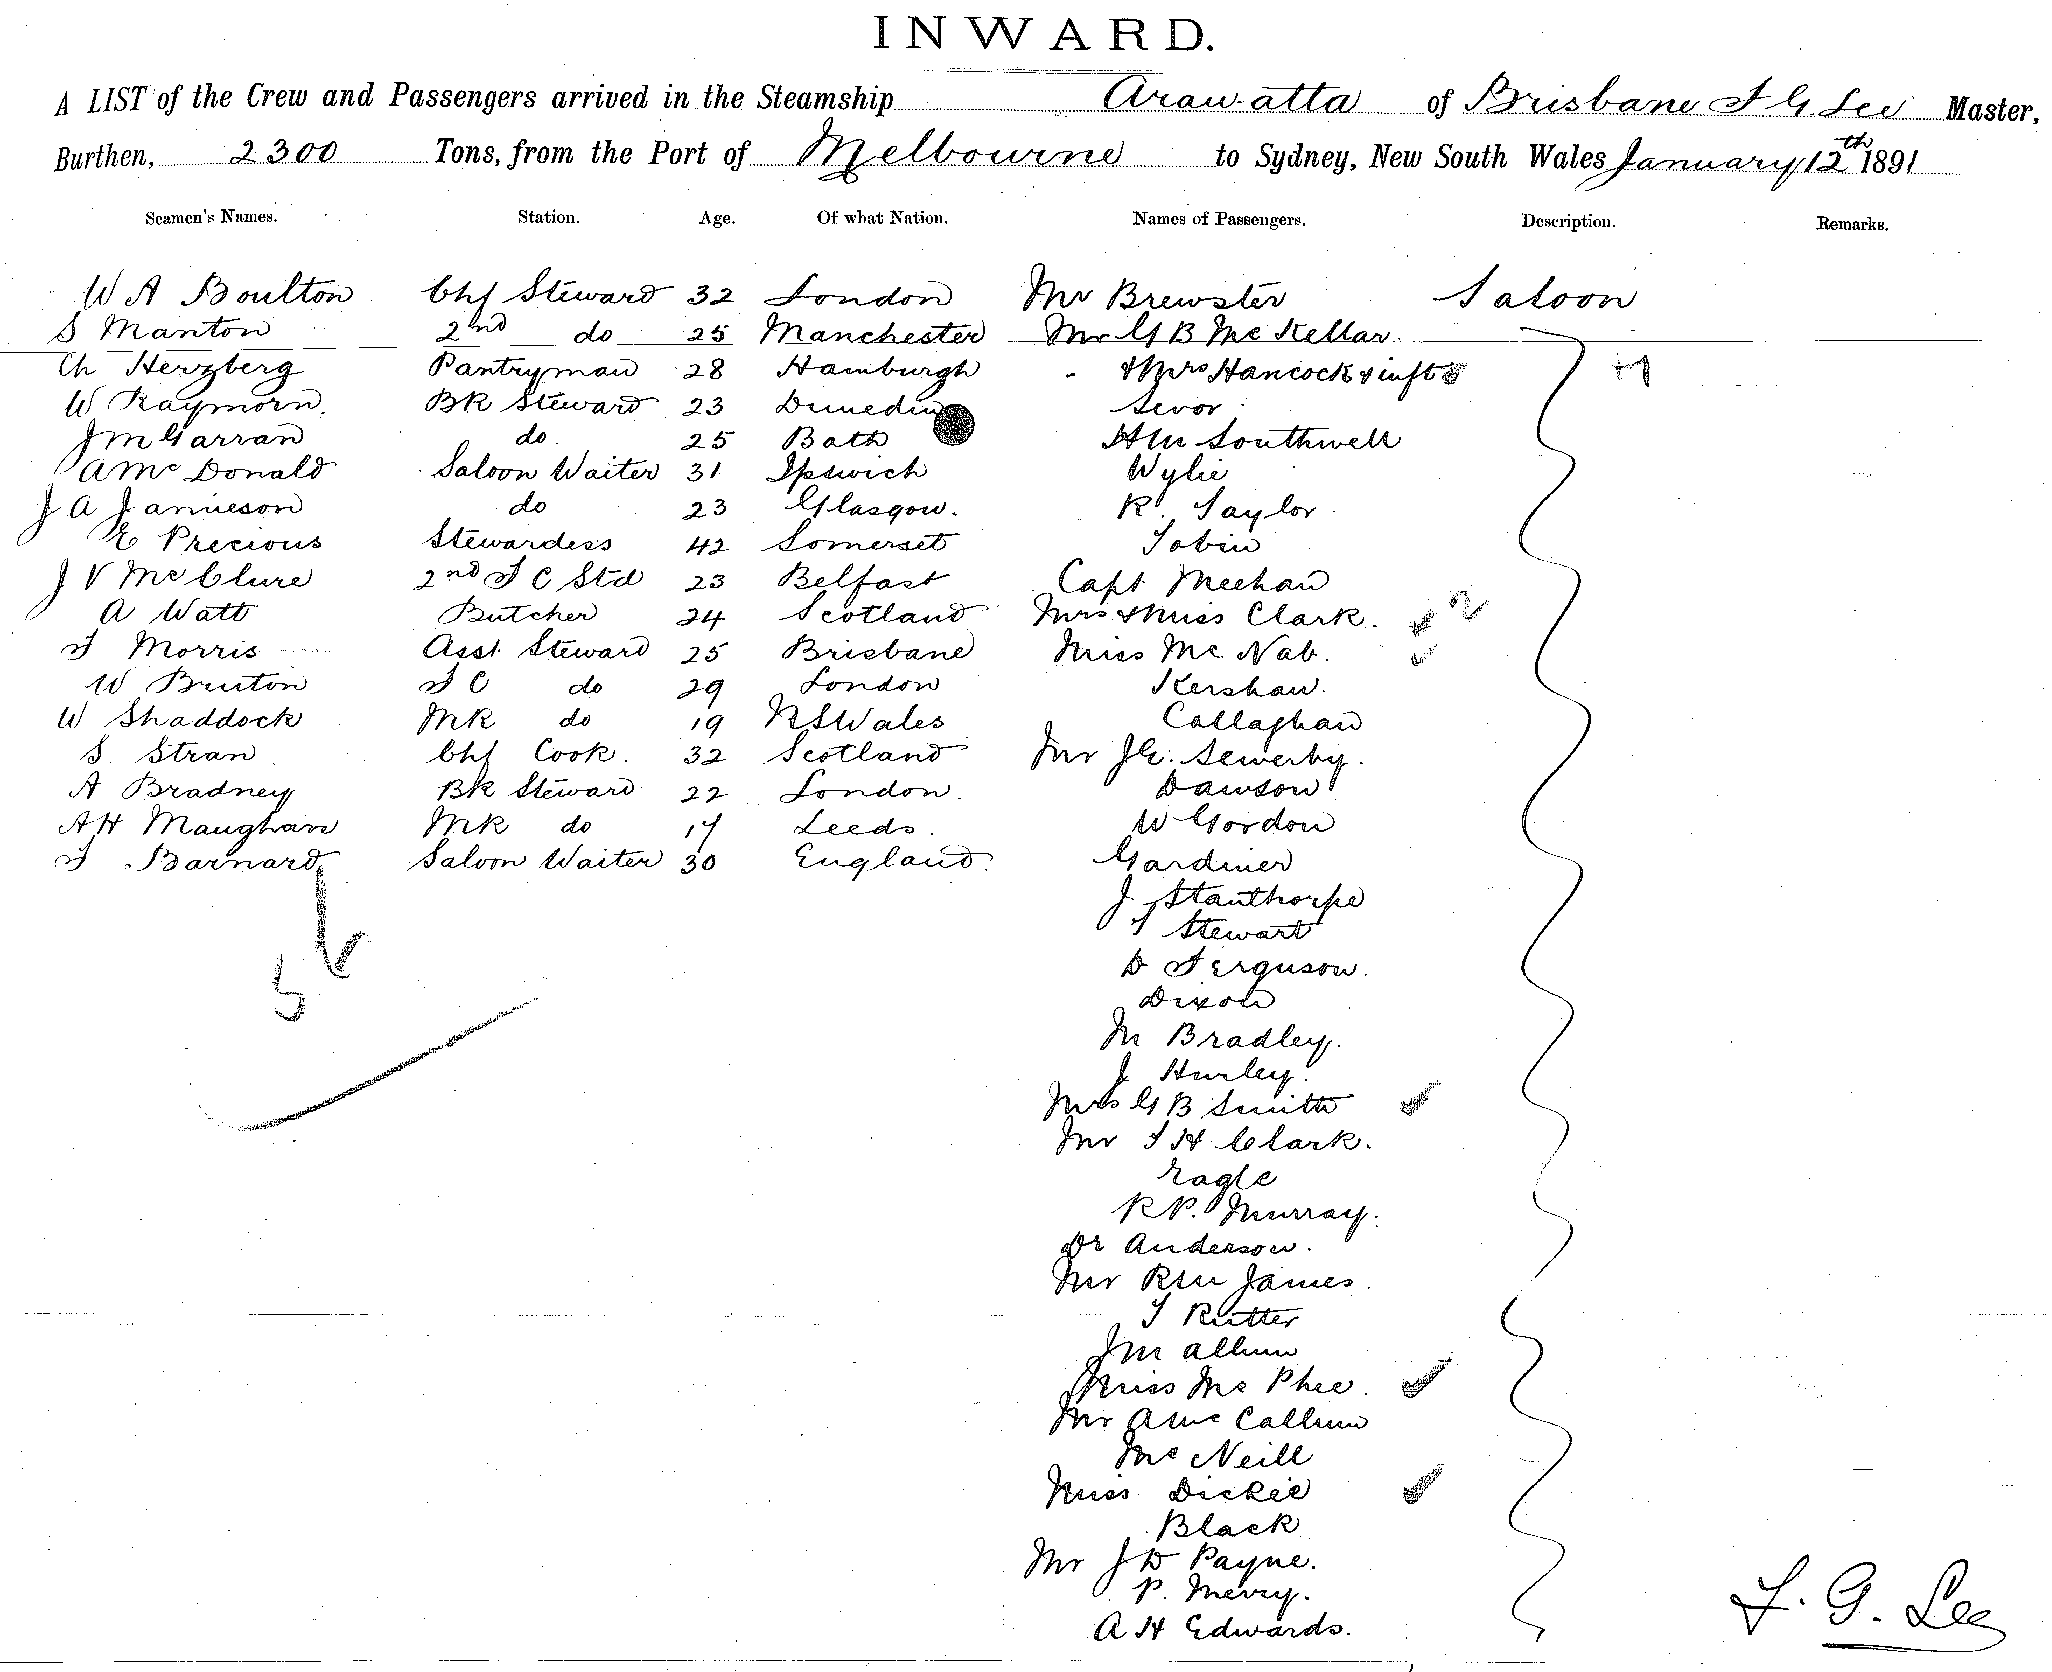 INWARD.
A LIST of the Crew and Passengers arrived in the Steamship Arawatta of Brisbane F G Lee Master,
Burthen, 2300 Tons, from the Port of Melbourne to Sydney, New South Wales January 12th 1891
Seamen's Names. Station. Age. Of what Nation. Names of Passengers. Description. Remarks.
W A Boulton Chf Steward 32 London Mr Brewster Saloon
S Manton 2nd do 25 Manchester Mr G B Mc Kellar
Ch Herzberg Pantryman 28 Hamburgh " & Mrs Hancock & inft
W Raymorn. BK Steward 23 Dunedin Sevor
J M Garran do 25 Bath H M Southwell
A Mc Donald Saloon Waiter 31 Ipswich Wylie
J A Jamieson do 23 Glasgow. R. Taylor
E Precious Stewardess 42 Somerset Tobin
J V Mc Clure 2nd F C Std 23 Belfast Capt Meehan
A Watt Butcher 24 Scotland Mrs & Miss Clark. 2
F Morris Asst Steward 25 Brisbane Miss Mc Nab.
W Bruton F C do 29 London Kershaw.
W Shaddock MK do 19 N S Wales Callaghan
S Stran Chf Cook. 32 Scotland Mr J E. Sewerby.
A Bradney BK Steward 22 London. Dawson
A H Maughan MK do 17 Leeds. W Gordon
F Barnard Saloon Waiter 30 England. Gardiner
J Stanthorpe
T Stewart
D Ferguson.
Dixon
M Bradley.
J Hurley.
Mrs G B Smith
Mr T H Clark.
Eagle
R P. Murray.
Dr Anderson.
Mr R M James.
T Rutter
J M Allum
Miss Mc Phee.
Mr A Mc Callum
Mc Neill
Miss Dickie
Black
Mr J D Payne.
P. Merry.
A H Edwards.
F. G. Lee